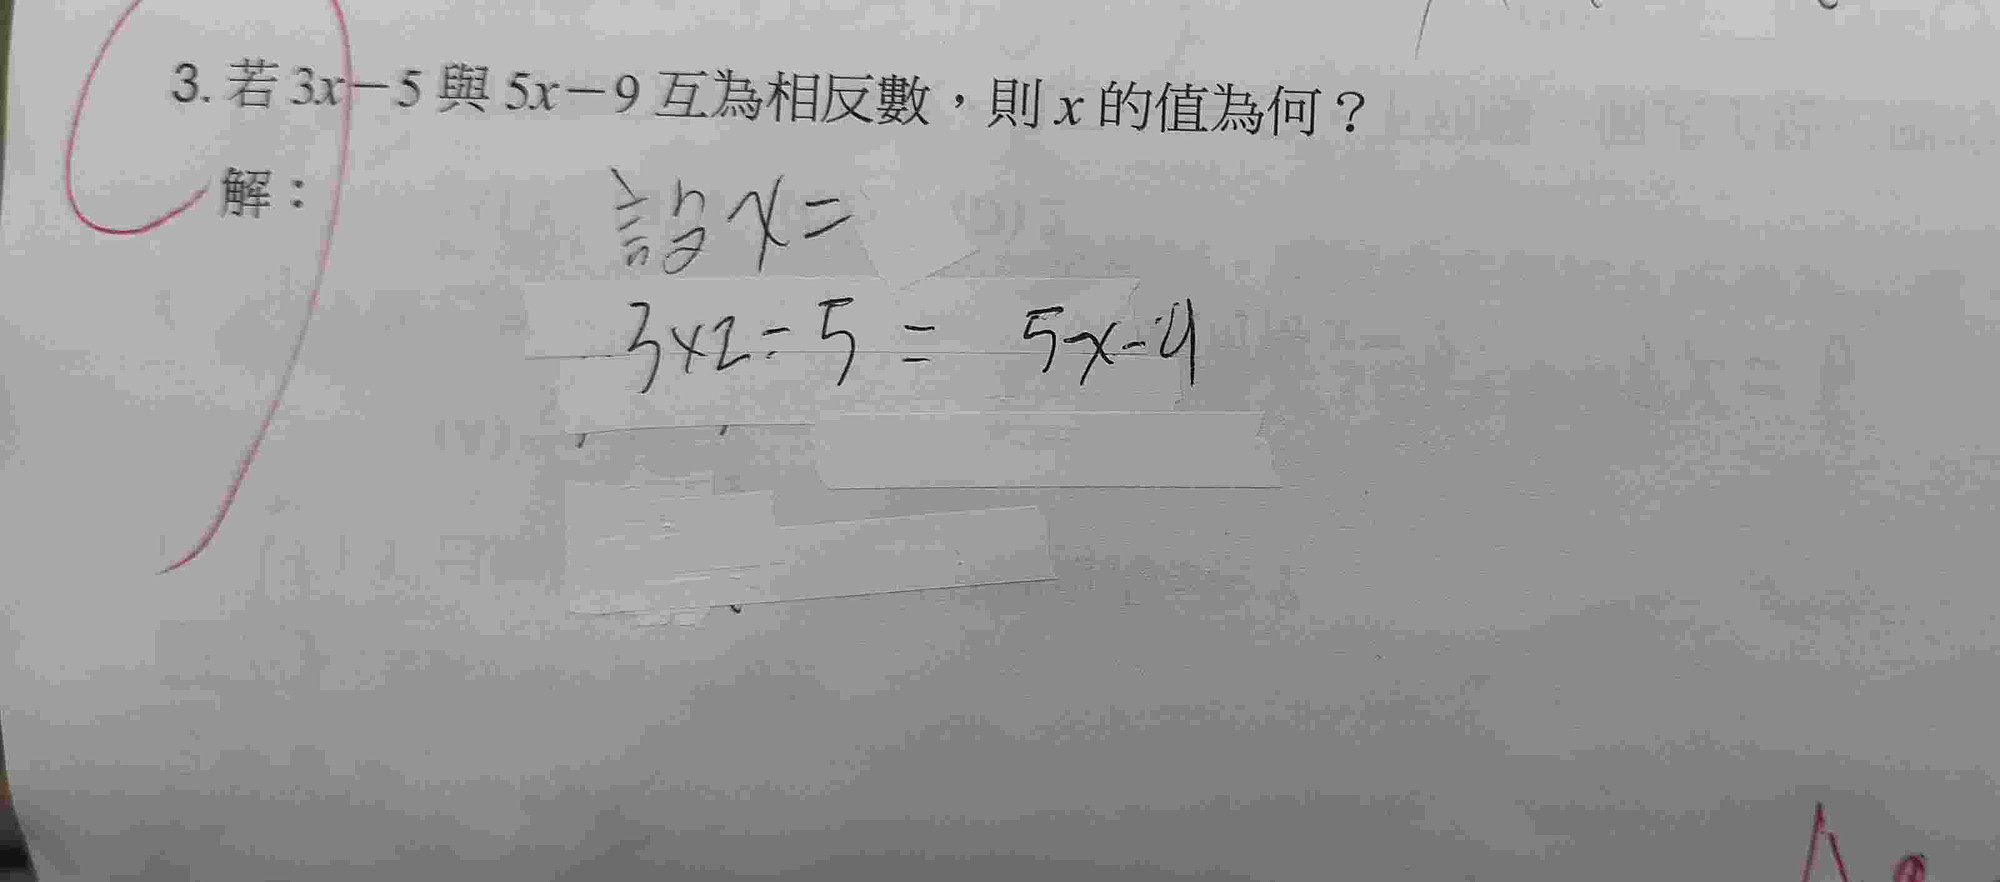 3. 若 3x－5 與 5x－9 互為相反數，則 x 的值為何？
解：
設 x =
3x2-5 = 5x-9